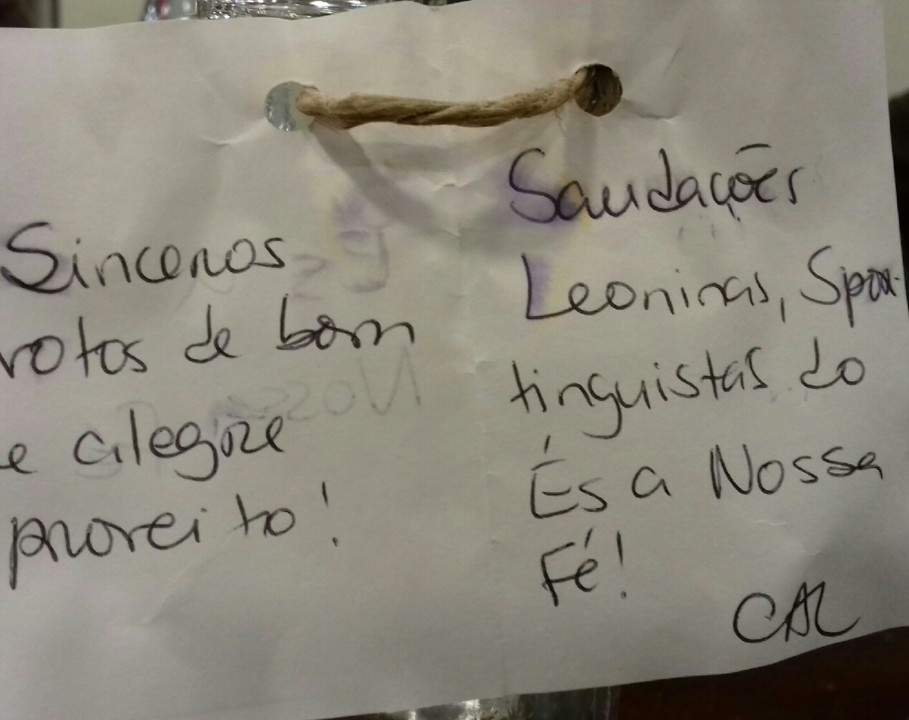 Sinceros
votos de bom
e alegre
proveito!
Saudações
Leoninas, Spor-
tinguistas do
És a Nossa
Fé!
CAL